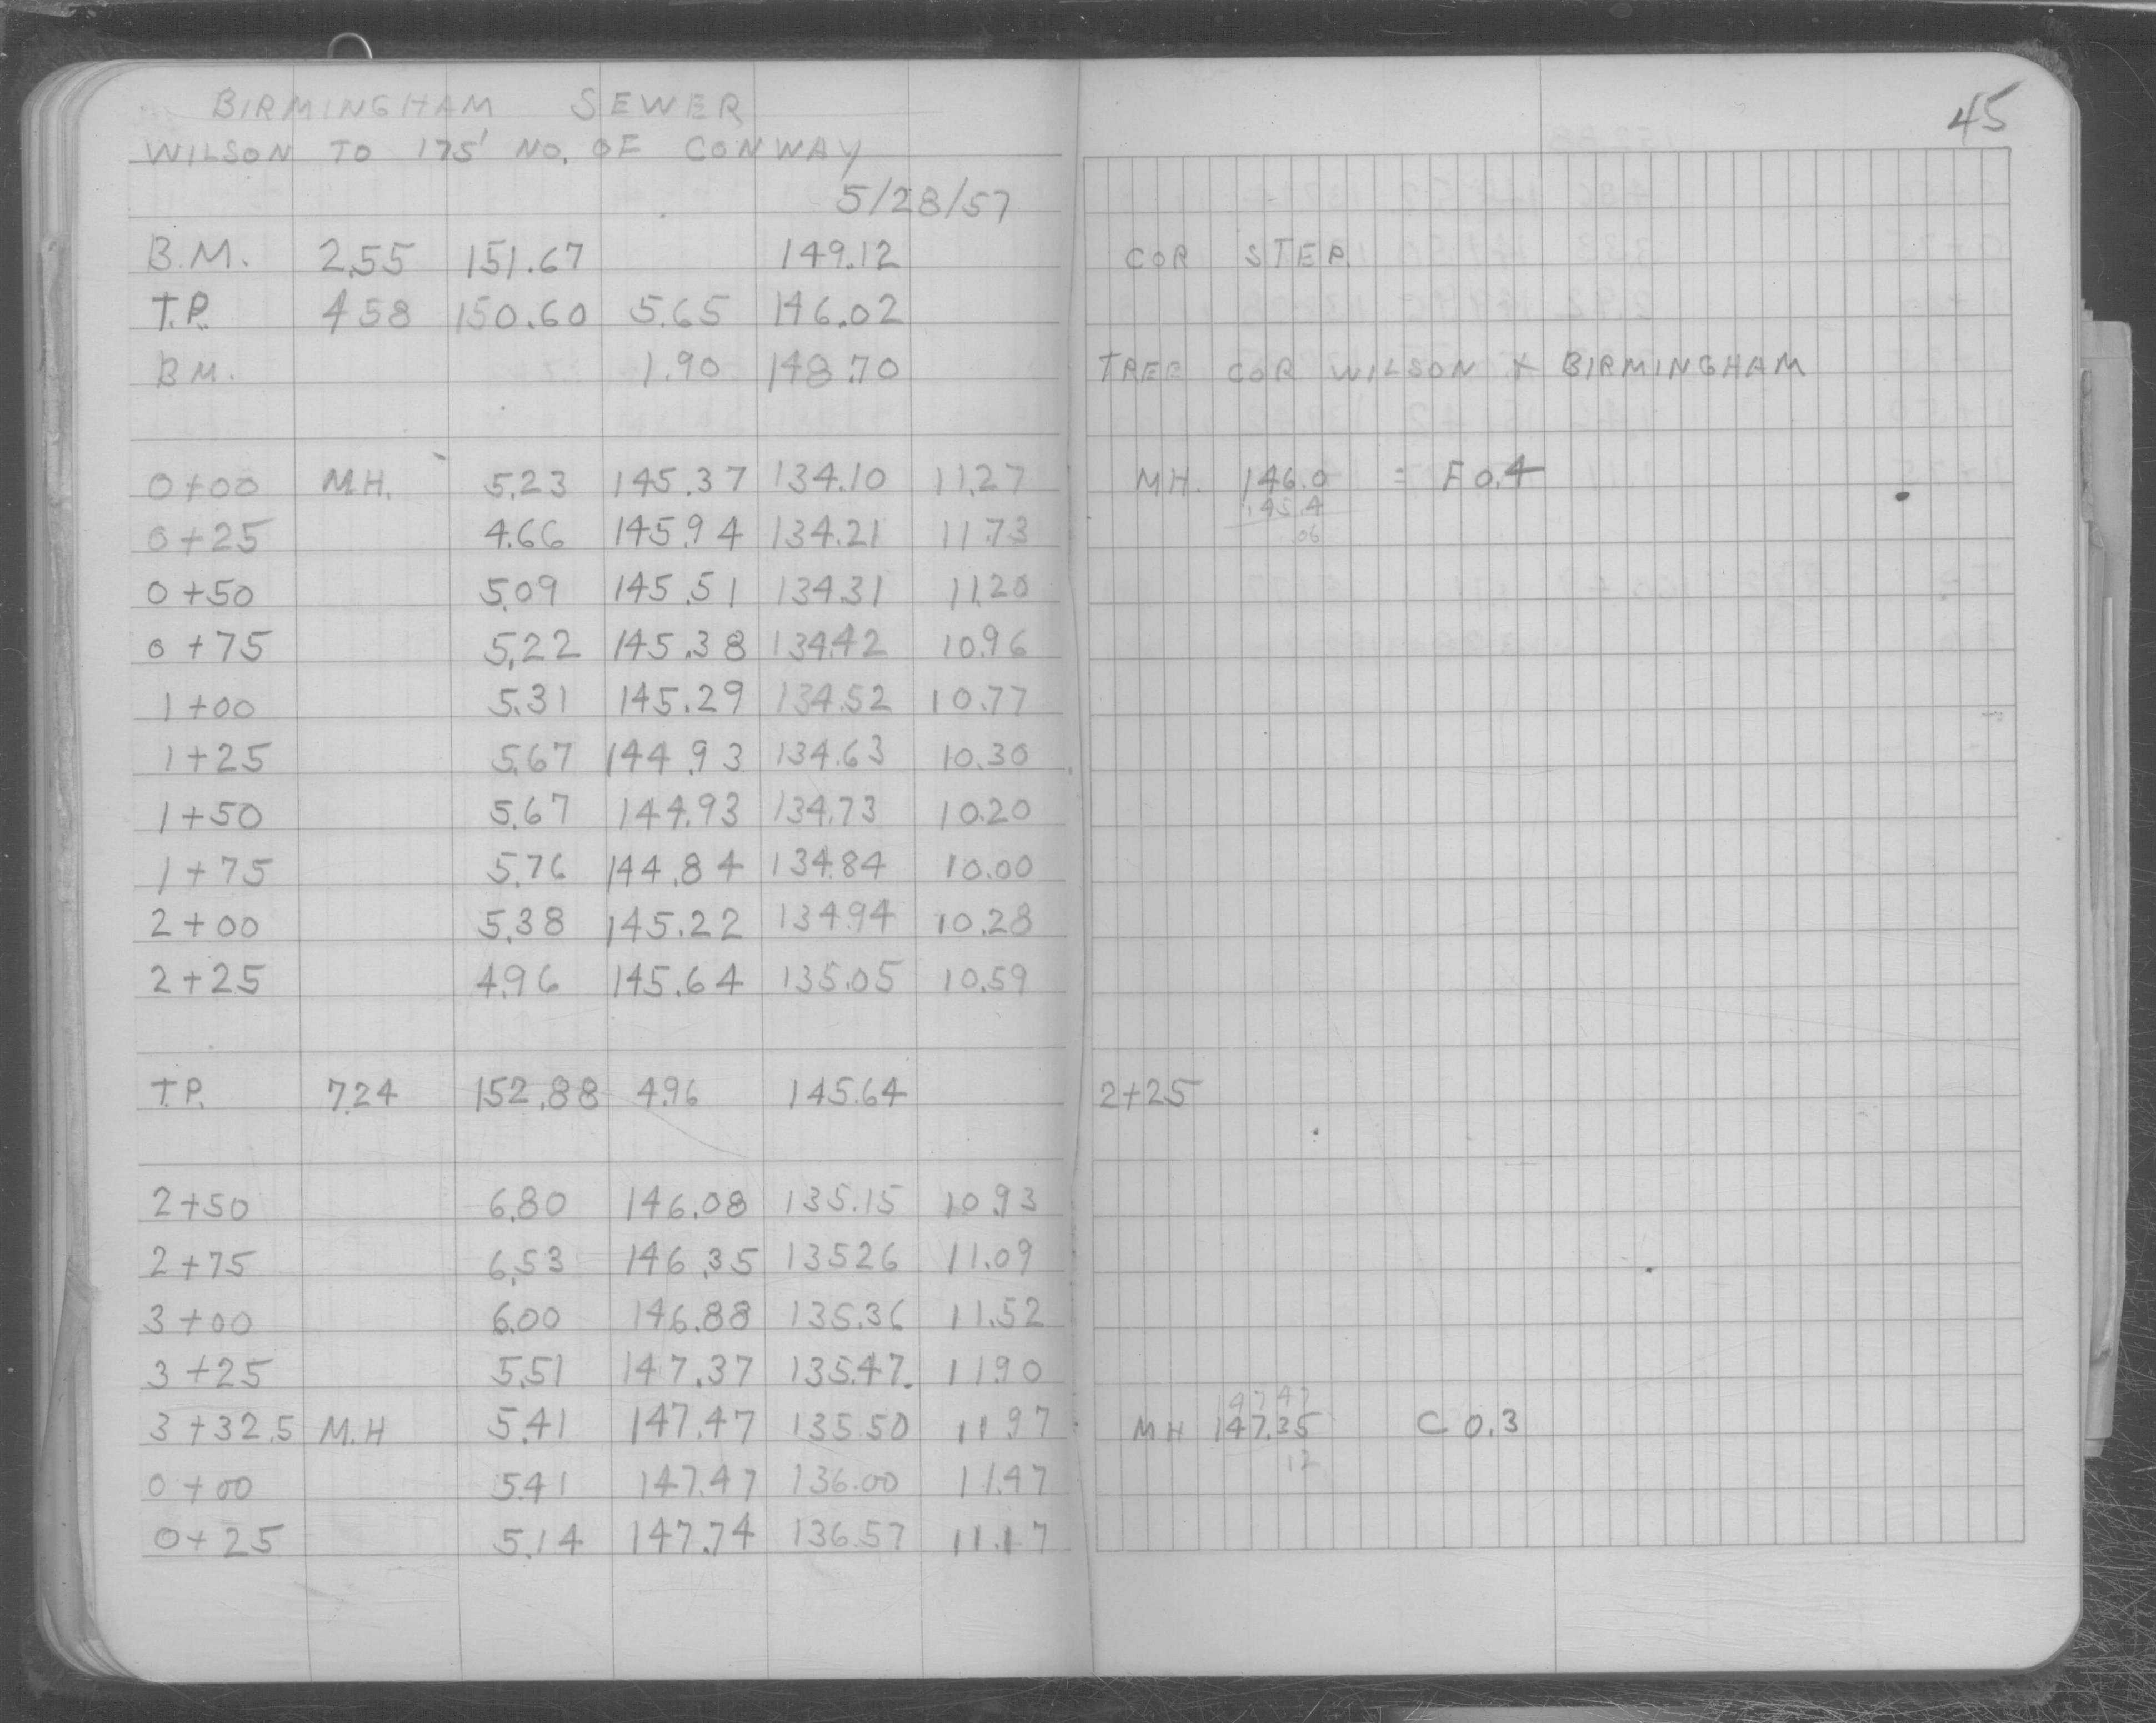 BIRMINGHAM SEWER
45
WILSON TO 175' NO. OF CONWAY
5/28/57
B.M. 2.55 151.67 149.12 COR STEP.
T.P. 4.58 150.60 5.65 146.02
B.M. 1.90 148.70 TREE COR WILSON + BIRMINGHAM
0+00 M.H. 5.23 145.37 134.10 11.27 MH. 146.0 = F 0.4
145.4
0+25 4.66 145.94 134.21 11.73 .06
0+50 5.09 145.51 134.31 11.20
0+75 5.22 145.38 134.42 10.96
1+00 5.31 145.29 134.52 10.77
1+25 5.67 144.93 134.63 10.30
1+50 5.67 144.93 134.73 10.20
1+75 5.76 144.84 134.84 10.00
2+00 5.38 145.22 134.94 10.28
2+25 4.96 145.64 135.05 10.59
T.P. 7.24 152.88 4.96 145.64 2+25
2+50 6.80 146.08 135.15 10.93
2+75 6.53 146.35 135.26 11.09
3+00 6.00 146.88 135.36 11.52
3+25 5.51 147.37 135.47. 11.90
147.47
3+32.5 M.H 5.41 147.47 135.50 11.97 MH 147.35 C 0.3
12
0+00 5.41 147.47 136.00 11.47
0+25 5.14 147.74 136.57 11.17